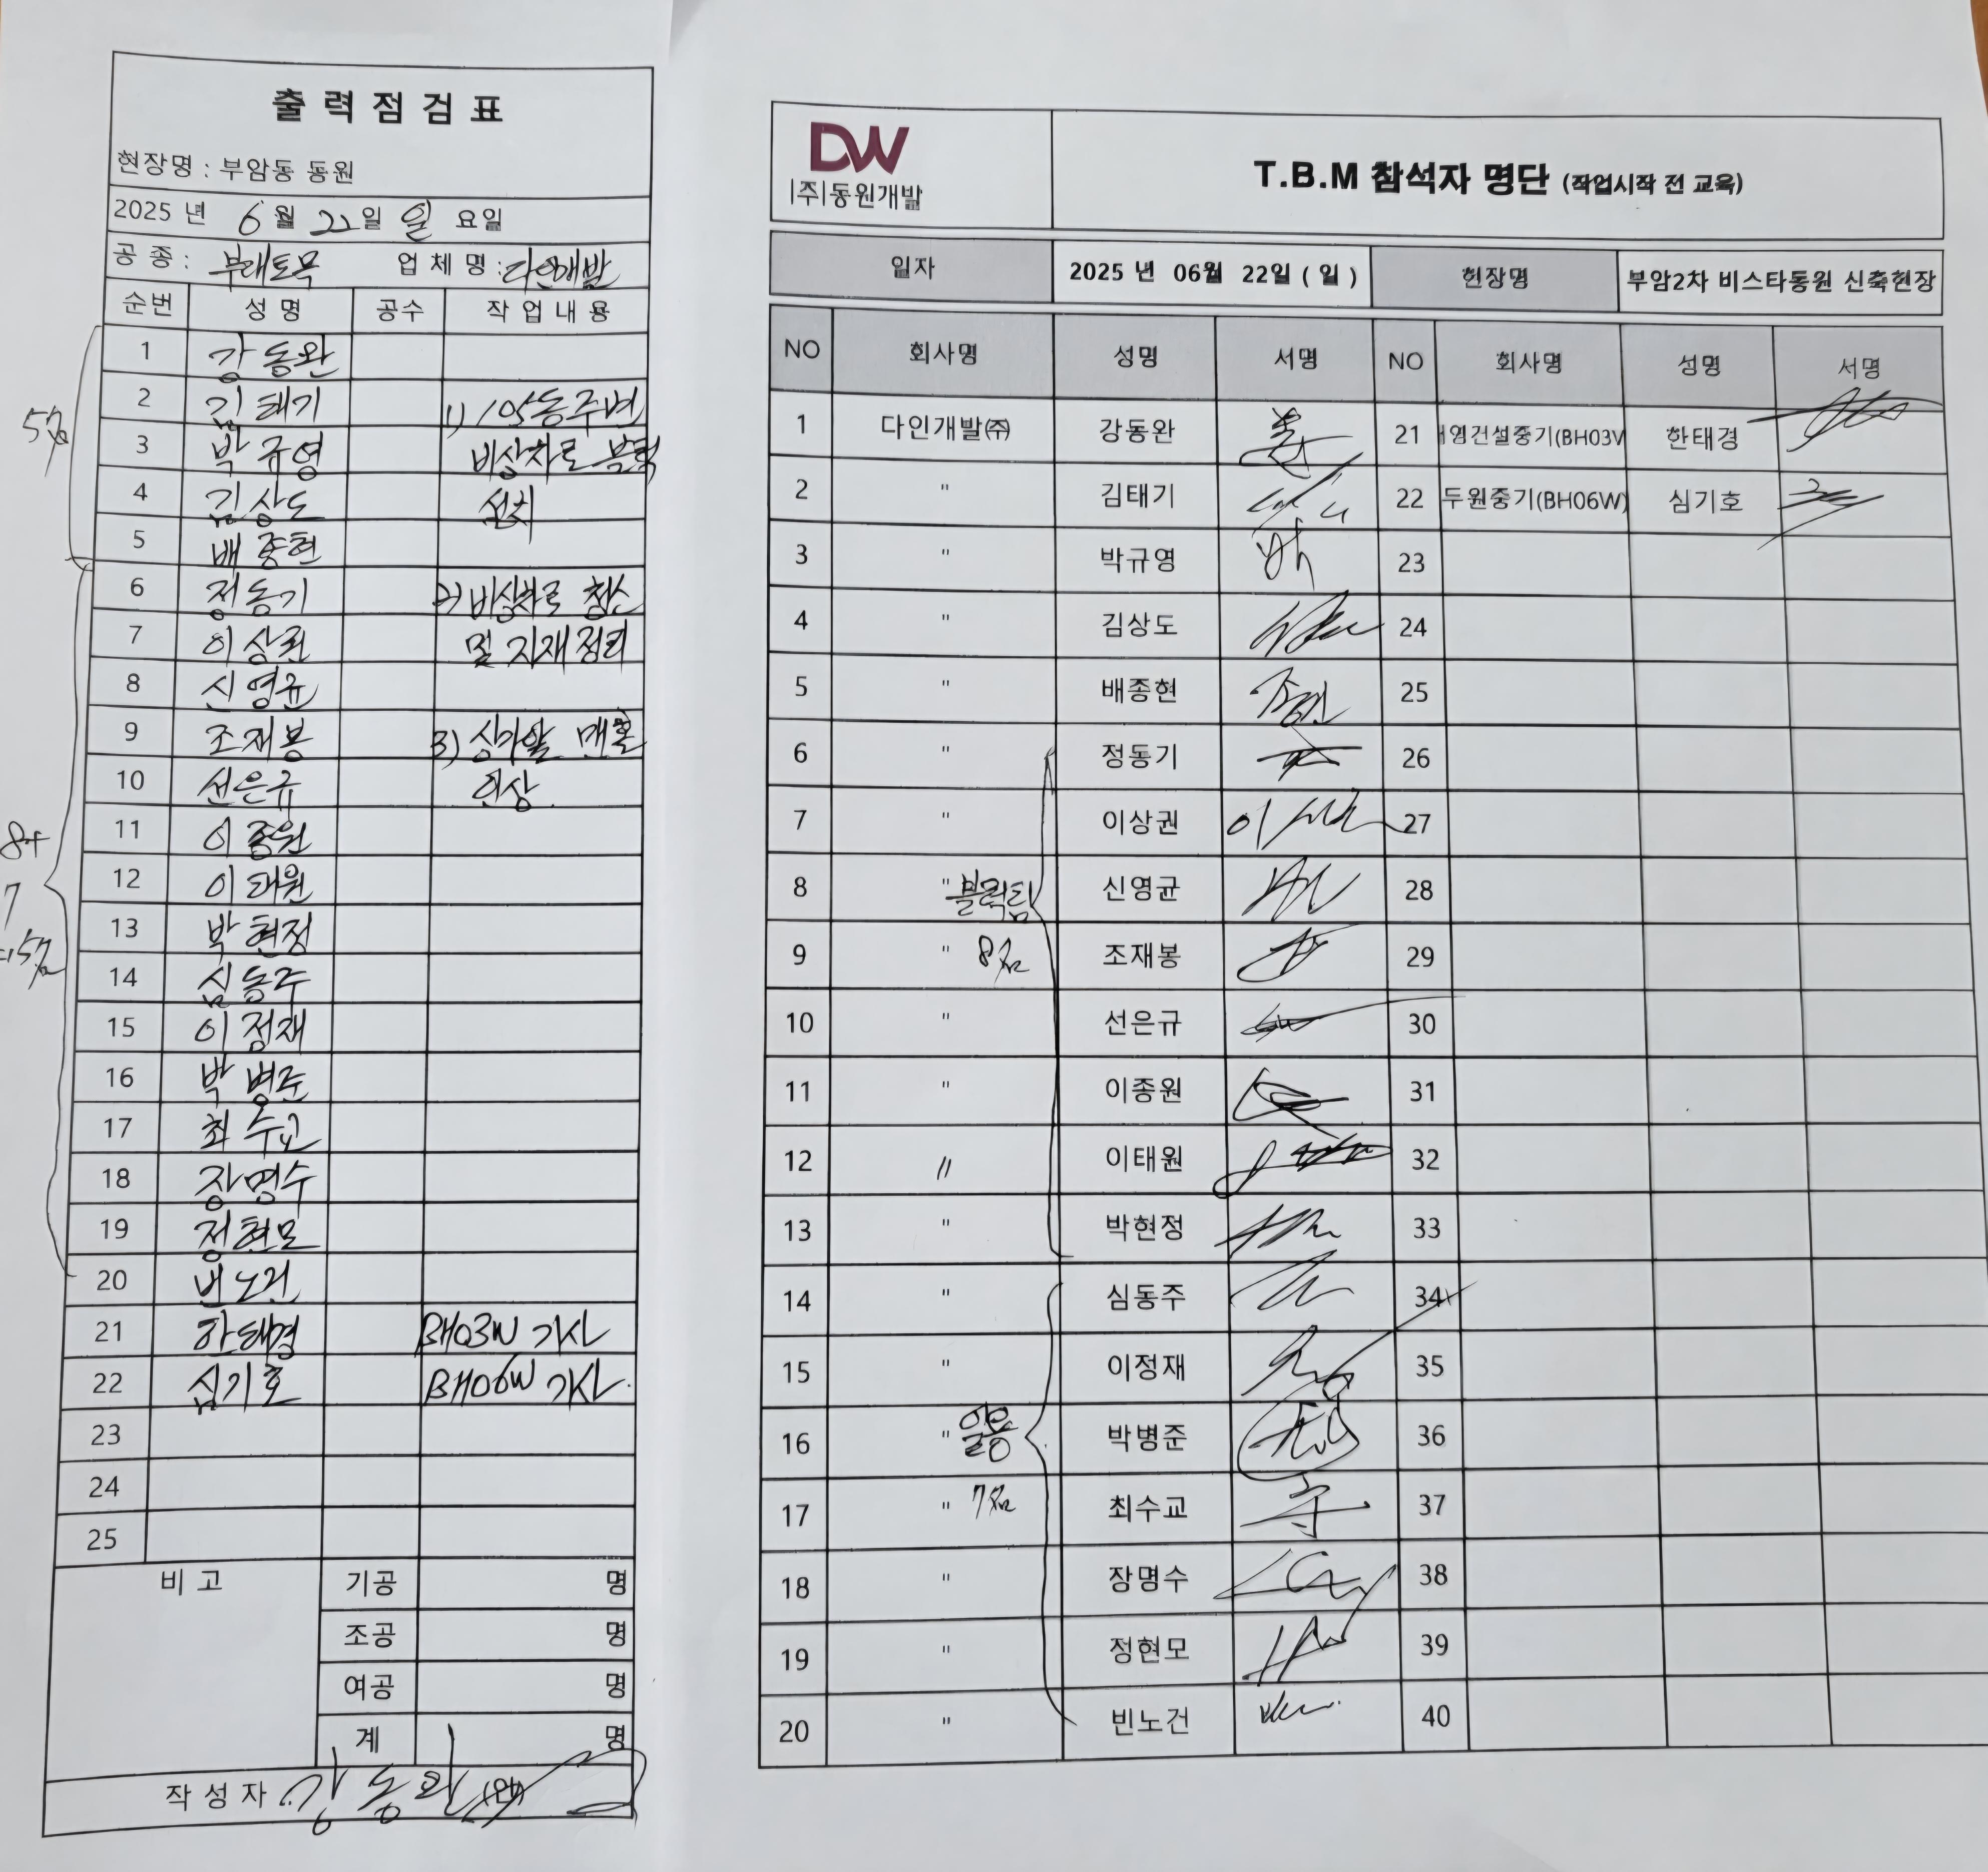 출력점검표
현장명 : 부암동 동원
2025 년 6월 22일 일 요일
공종 : 부대토목 업체명 : 다인개발
순번 성명 공수 작업내용
1 강동완
2 김태기 1) 105동주변
3 박규영 비상차로 블럭
4 김상도 설치
5 배종현
6 정동기 2) 비상차로 청소
7 이상권 및 자재정리
8 신영균
9 조재봉 3) 상가앞 맨홀
10 선은규 인상
11 이종원
12 이태원
13 박현정
14 심동주
15 이정재
16 박병준
17 최수교
18 장명수
19 정현모
20 빈노건
21 한태경 BH03W 기사
22 심기호 BH06W 기사
23
24
25
비고 기공 명
조공 명
여공 명
계 명
작성자 : 강동완 (인)
5명
8+
7
=15명
DW
(주)동원개발
T.B.M 참석자 명단 (작업시작 전 교육)
일자 2025 년 06월 22일 ( 일 ) 현장명 부암2차 비스타동원 신축현장
NO 회사명 성명 서명 NO 회사명 성명 서명
1 다인개발㈜ 강동완 21 영건설중기(BH03W 한태경
2 " 김태기 22 두원중기(BH06W) 심기호
3 " 박규영 23
4 " 김상도 24
5 " 배종현 25
6 " 정동기 26
7 " 이상권 27
8 " 블럭팀 신영균 28
9 " 8명 조재봉 29
10 " 선은규 30
11 " 이종원 31
12 " 이태원 32
13 " 박현정 33
14 " 심동주 34
15 " 이정재 35
16 " 일용 박병준 36
17 " 7명 최수교 37
18 " 장명수 38
19 " 정현모 39
20 " 빈노건 40